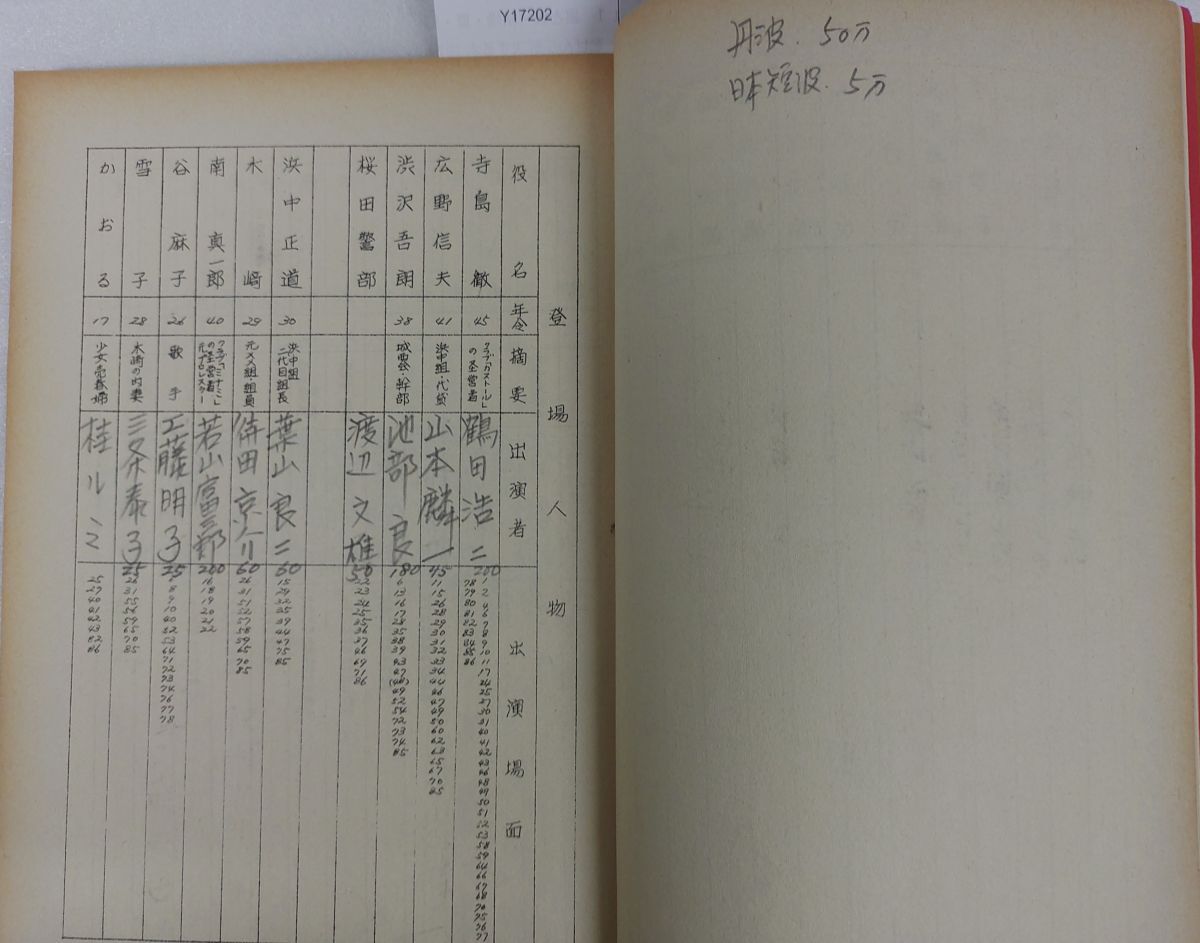 Y17202
丹波. 50万
日本短波. 5万
登場人物
役名
年令
摘要
出演者
出演場面
寺島 徹
45
クラブ「カストール」の経営者
鶴田浩二
200
1 2 4 6 7 8 9 10 11 17 24 25 27 30 31 40 41 42 43 46 48 49 50 51 52 53 58 59 64 66 67 68 70 75 76 77
78 79 80 81 82 83 84 85 86
広野信夫
41
浜中組・代貸
山本麟一
45
11 15 26 28 29 30 31 32 33 34 44 46 47 49 50 60 62 63 65 67 70 85
渋沢吾朗
38
城西会・幹部
池部 良
180
6 13 16 17 28 35 38 39 43 47 (48) 49 52 54 72 73 74 85
桜田警部
渡辺文雄
50
22 23 24 25 35 36 37 46 69 71 86
浜中正道
30
浜中組二代目組長
葉山良二
60
15 29 32 35 39 44 47 75 85
木崎
29
元〆〆組組員
待田京介
60
26 31 51 52 57 58 59 65 70 85
南 真一郎
40
クラブ「ミナミ」の経営者 元プロレスラー
若山富三郎
200
16 18 19 20 21 22
谷 麻子
26
歌手
工藤明子
25
8 9 10 40 52 53 64 71 72 73 74 76 77 78
雪子
28
木崎の内妻
三条泰子
25
26 31 55 56 59 65 70 85
かおる
17
少女売春婦
桂ルミ
25 27 40 41 42 43 82 86